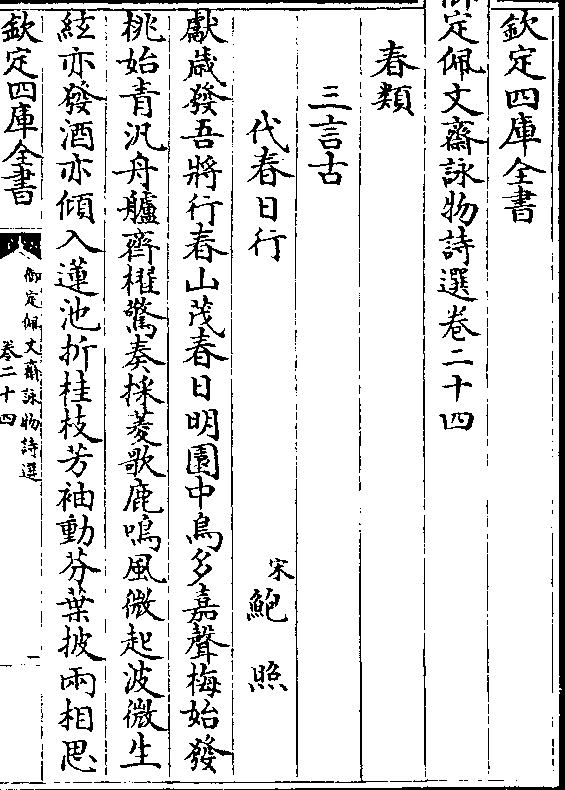 欽定四庫全書
御定佩文齋詠物詩選卷二十四
春類
三言古
代春日行　宋鮑照
獻歳發吾將行春山茂春日明園中鳥多嘉聲梅始發
桃始青汎舟艫齊櫂驚奏採菱歌鹿鳴風微起波微生
絃亦發酒亦傾入蓮池折桂枝芳袖動芬葉披兩相思
欽定四庫全書
御定佩文齋詠物詩選
卷二十四
一